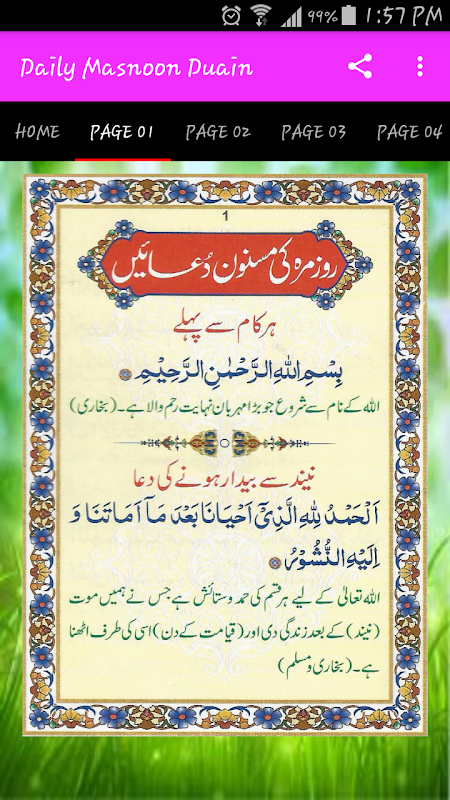 99% 1:57 PM
Daily Masnoon Duain
HOME PAGE 01 PAGE 02 PAGE 03 PAGE 04
1
روزمرہ کی مسنون دُعائیں
ہر کام سے پہلے
بِسْمِ اللهِ الرَّحْمٰنِ الرَّحِيْمِ
اللہ کے نام سے شروع جو بڑا مہربان نہایت رحم والا ہے۔ (بخاری)
نیند سے بیدار ہونے کی دعا
اَلْحَمْدُ لِلّٰهِ الَّذِيْٓ اَحْيَانَا بَعْدَ مَآ اَمَاتَنَا وَ
اِلَيْهِ النُّشُوْرُ
اللہ تعالیٰ کے لیے ہر قسم کی حمد و ستائش ہے جس نے ہمیں موت
(نیند) کے بعد زندگی دی اور (قیامت کے دن) اسی کی طرف اٹھنا
ہے۔ (بخاری و مسلم)